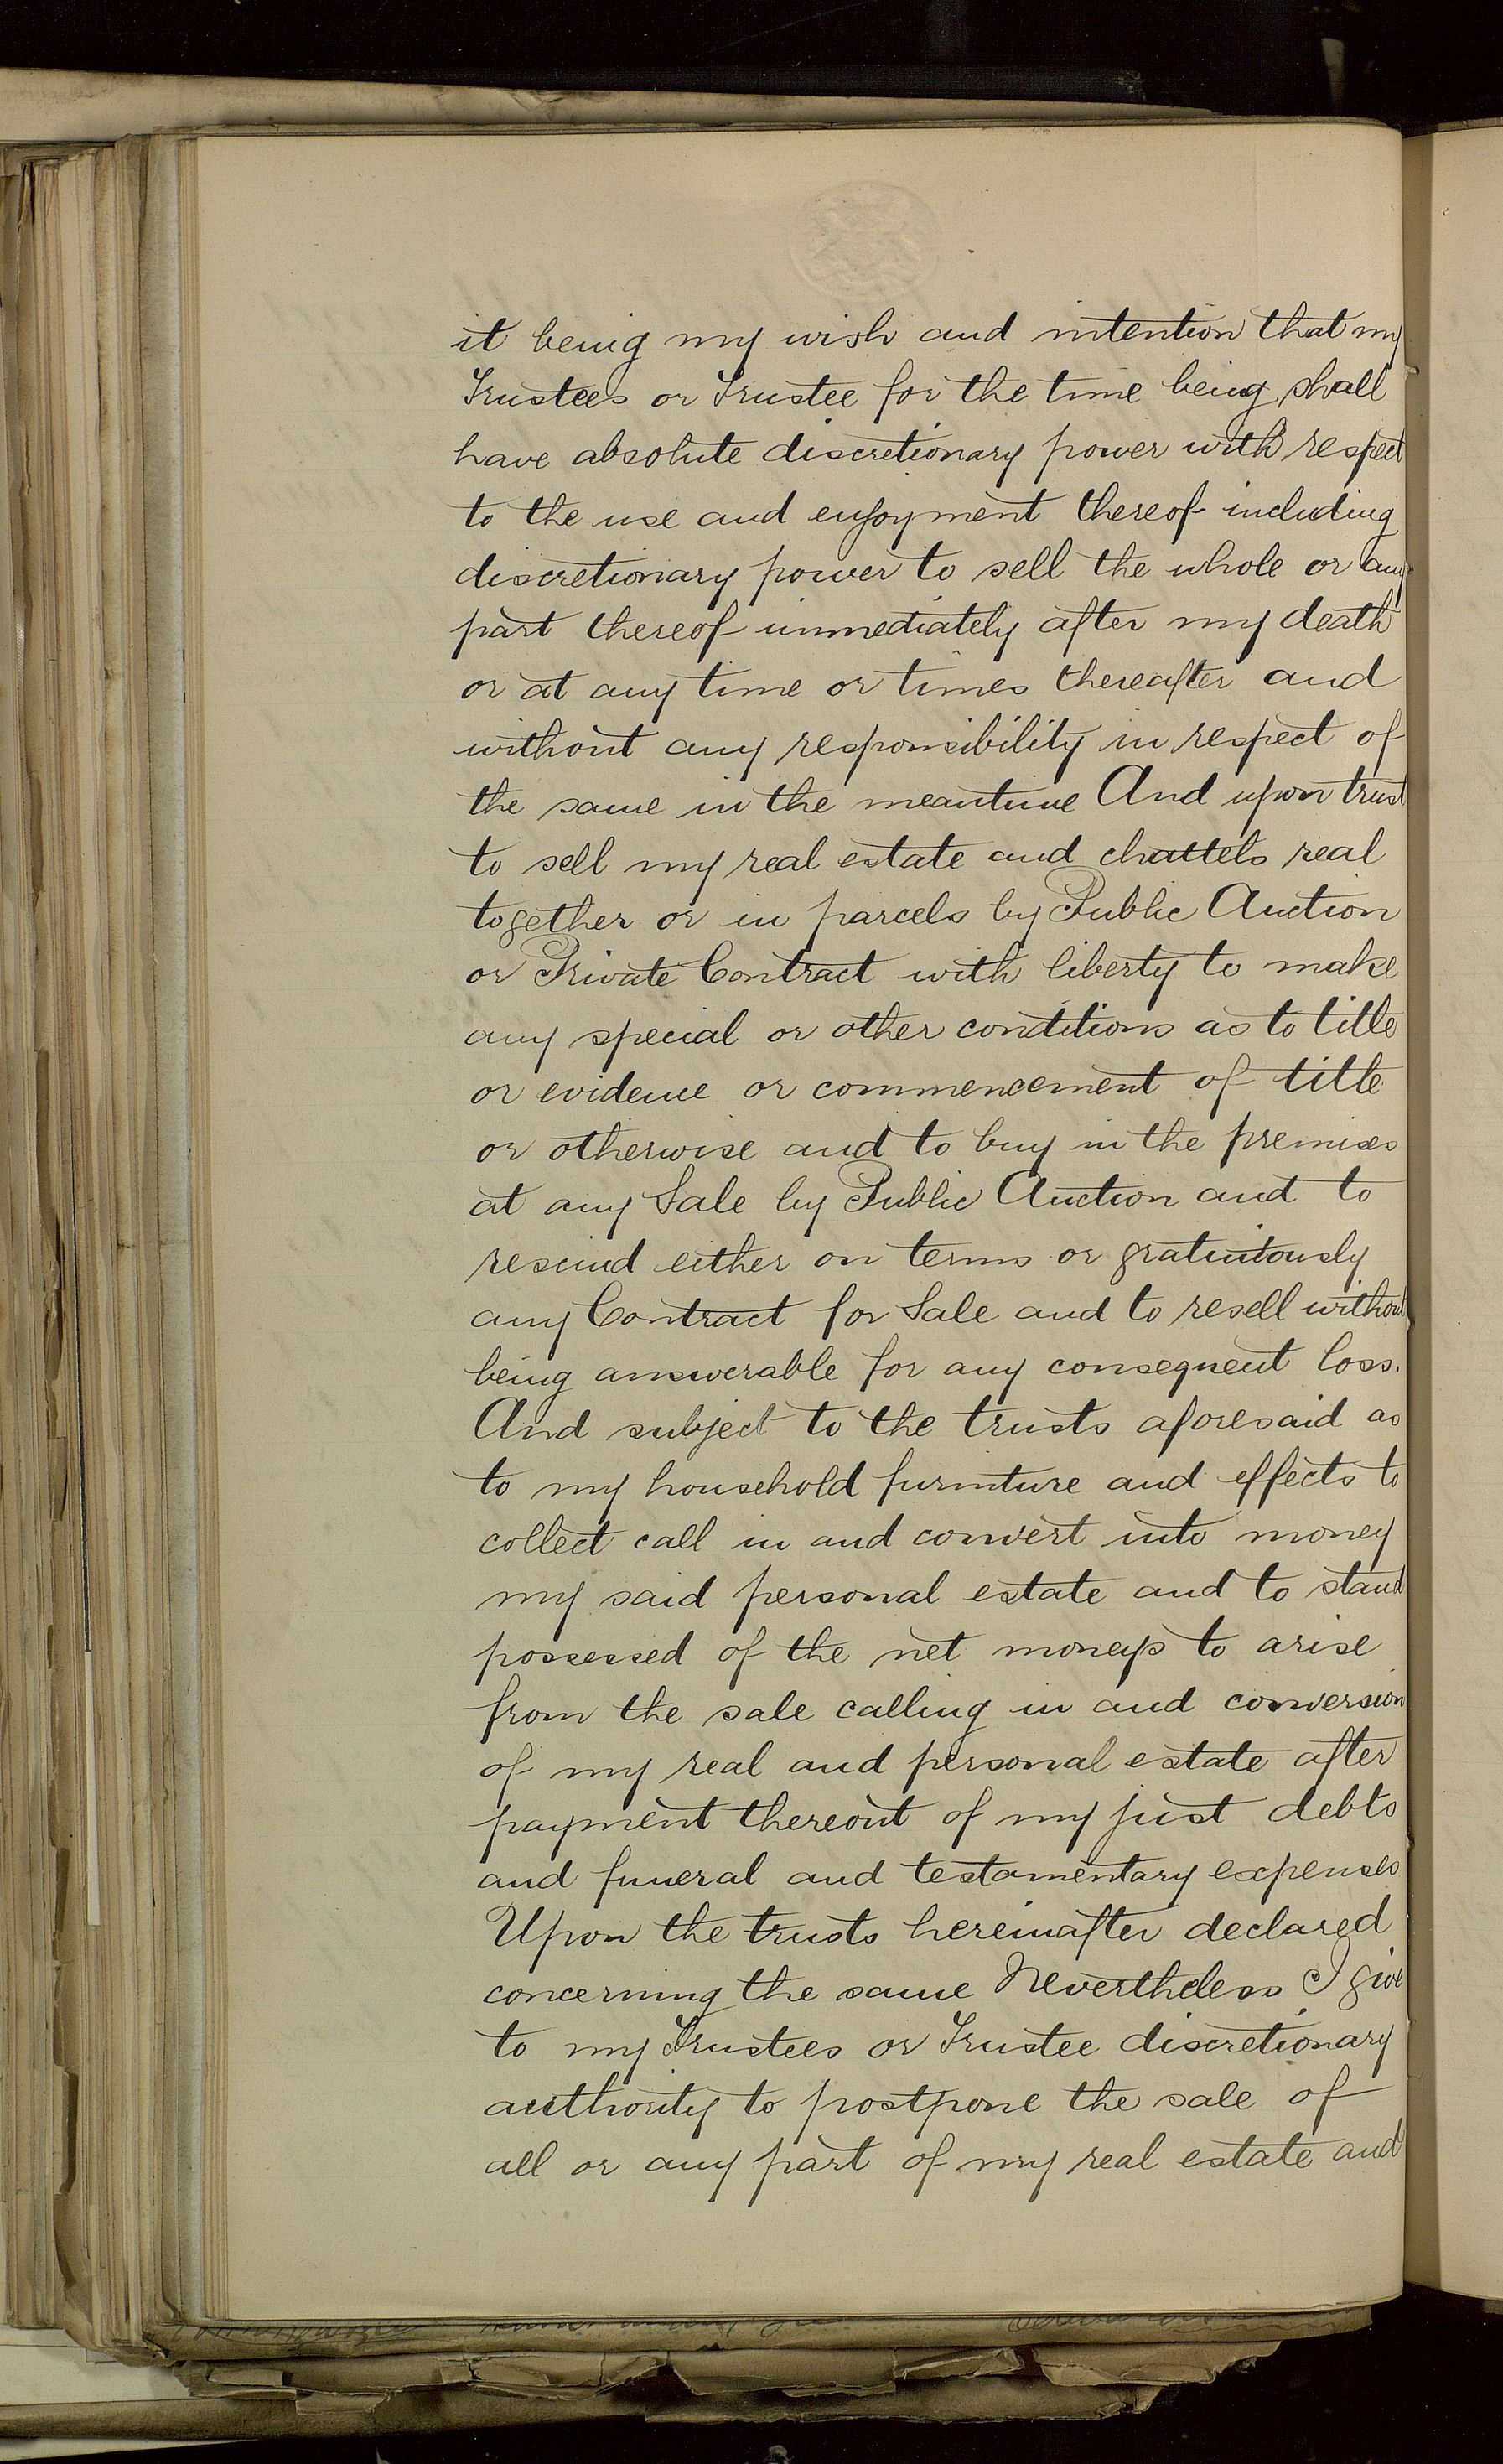 it being my wish and intention that my
Trustees or Trustee for the time being shall
have absolute discretionary power with respect
to the use and enjoyment thereof including
discretionary power to sell the whole or any
part thereof immediately after my death
or at any time or times thereafter and
without any responsibility in respect of
the same in the meantime And upon trust
to sell my real estate and chattels real
together or in parcels by Public Auction
or Private Contract with liberty to make
any special or other conditions as to title
or evidence or commencement of title
or otherwise and to buy in the premises
at any Sale by Public Auction and to
rescind either on terms or gratuitously
any Contract for Sale and to resell without
being answerable for any consequent loss.
And subject to the trusts aforesaid as
to my household furniture and effects to
collect call in and convert into money
my said personal estate and to stand
possessed of the net moneys to arise
from the sale calling in and conversion
of my real and personal estate after
payment thereout of my just debts
and funeral and testamentary expenses
Upon the trusts hereinafter declared
concerning the same Nevertheless I give
to my Trustees or Trustee discretionary
authority to postpone the sale of
all or any part of my real estate and